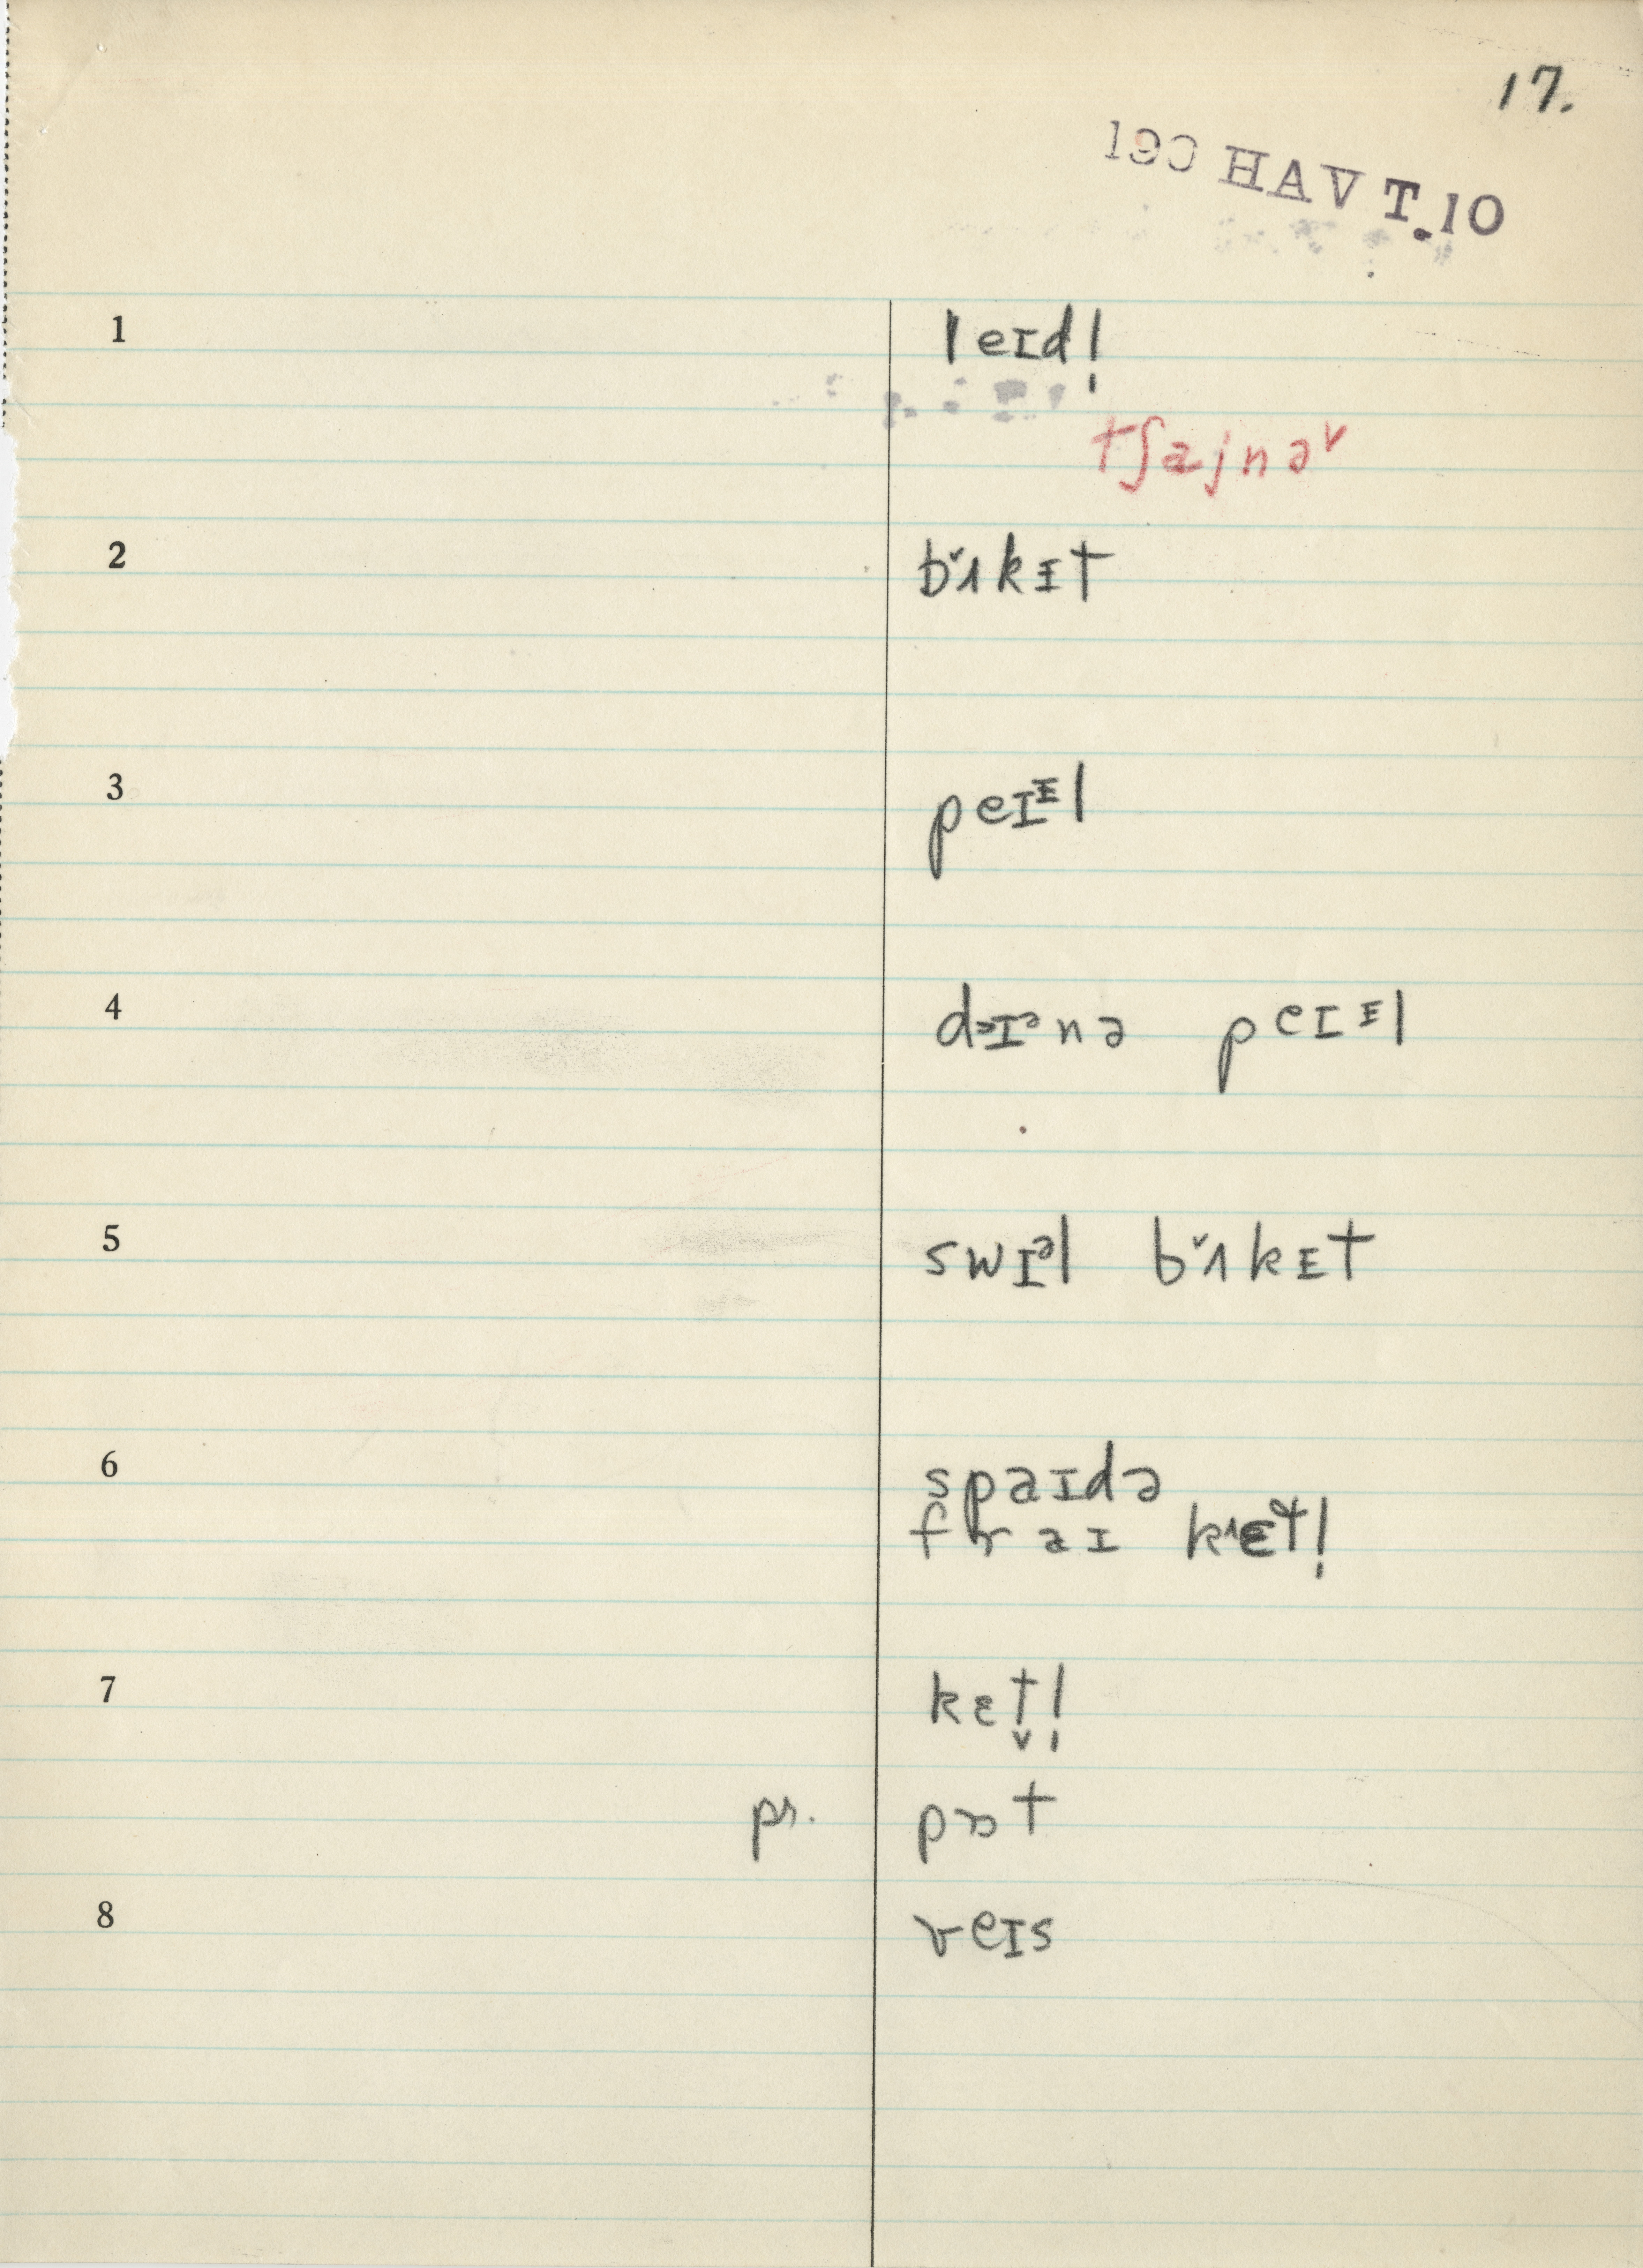 17.
190 HAV T.10
1 leɪd!
tʃajnəᵛ
2 bʌ̌kɪt
3 peɪᶦl
4 dɪᵊnə peɪᶦl
5 swɪᵊl bʌ̌kɪt
6 spaɪdə
fraɪ
7 kɛt̬!
pr. pɒt
8 veɪs